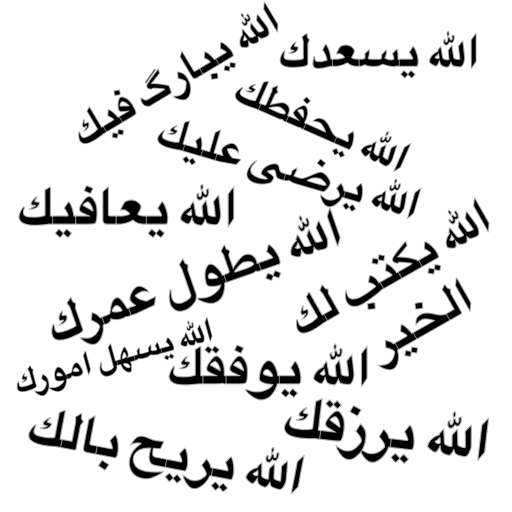 الله يسعدك
الله يبارگ فيك
الله يحفطك
الله يرضى عليك
الله يعافيك
الله يطول عمرك
الله يكتب لك
الخير
الله يسهل امورك
الله يوفقك
الله يرزقك
الله يريح بالك